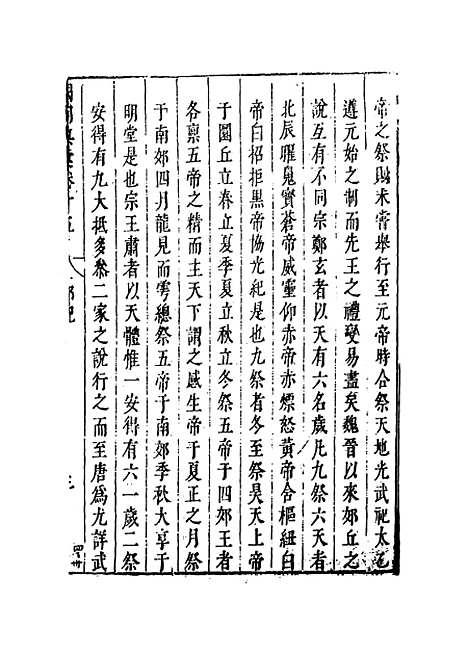 帝之祭則未嘗舉行至元帝時合祭天地光武祀太乙
遵元始之制而先王之禮變易盡矣魏晉以來郊丘之
說互有不同宗鄭玄者以天有六名歲凡九祭六天者
北辰曜鬼寳蒼帝威靈仰赤帝赤熛怒黃帝合樞紐白
帝白招拒黑帝恊光紀是也九祭者冬至祭昊天上帝
于圜丘立春立夏季夏立秋立冬祭五帝于四郊王者
各禀五帝之精而主天下謂之感生帝于夏正之月祭
于南郊四月龍見而雩總祭五帝于南郊季秋大享于
明堂是也宗王肅者以天體惟一安得有六一歲二祭
安得有九大抵多叅二家之說行之而至唐爲尤詳武
卷十五
郊祀